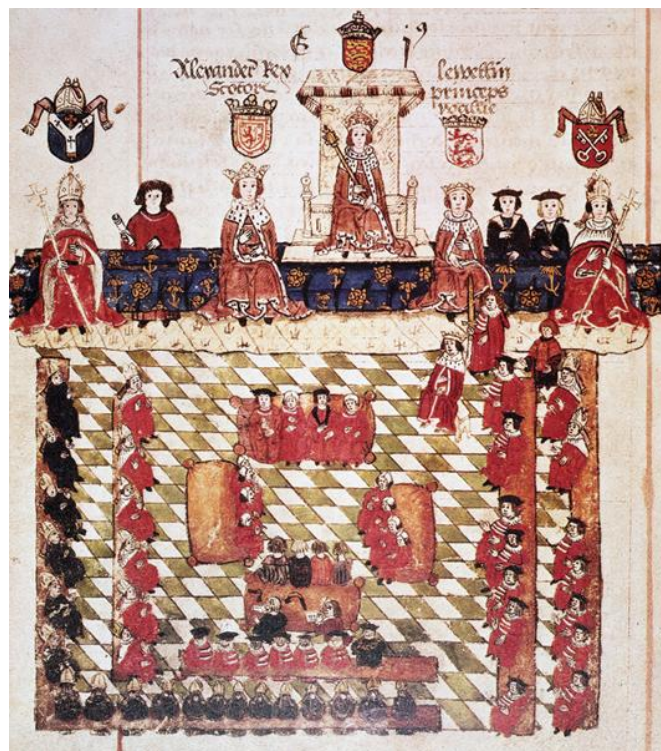 E j⁹
Alexander Rex
Scotor
lewellin
princeps
wallie